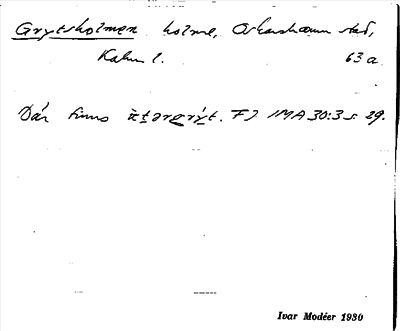 Grytsholmen holme, Oskarshamn stad,
Kalm l. 63 a
Där finns FJ IMA 30:3 s. 29.
Ivar Modéer 1930